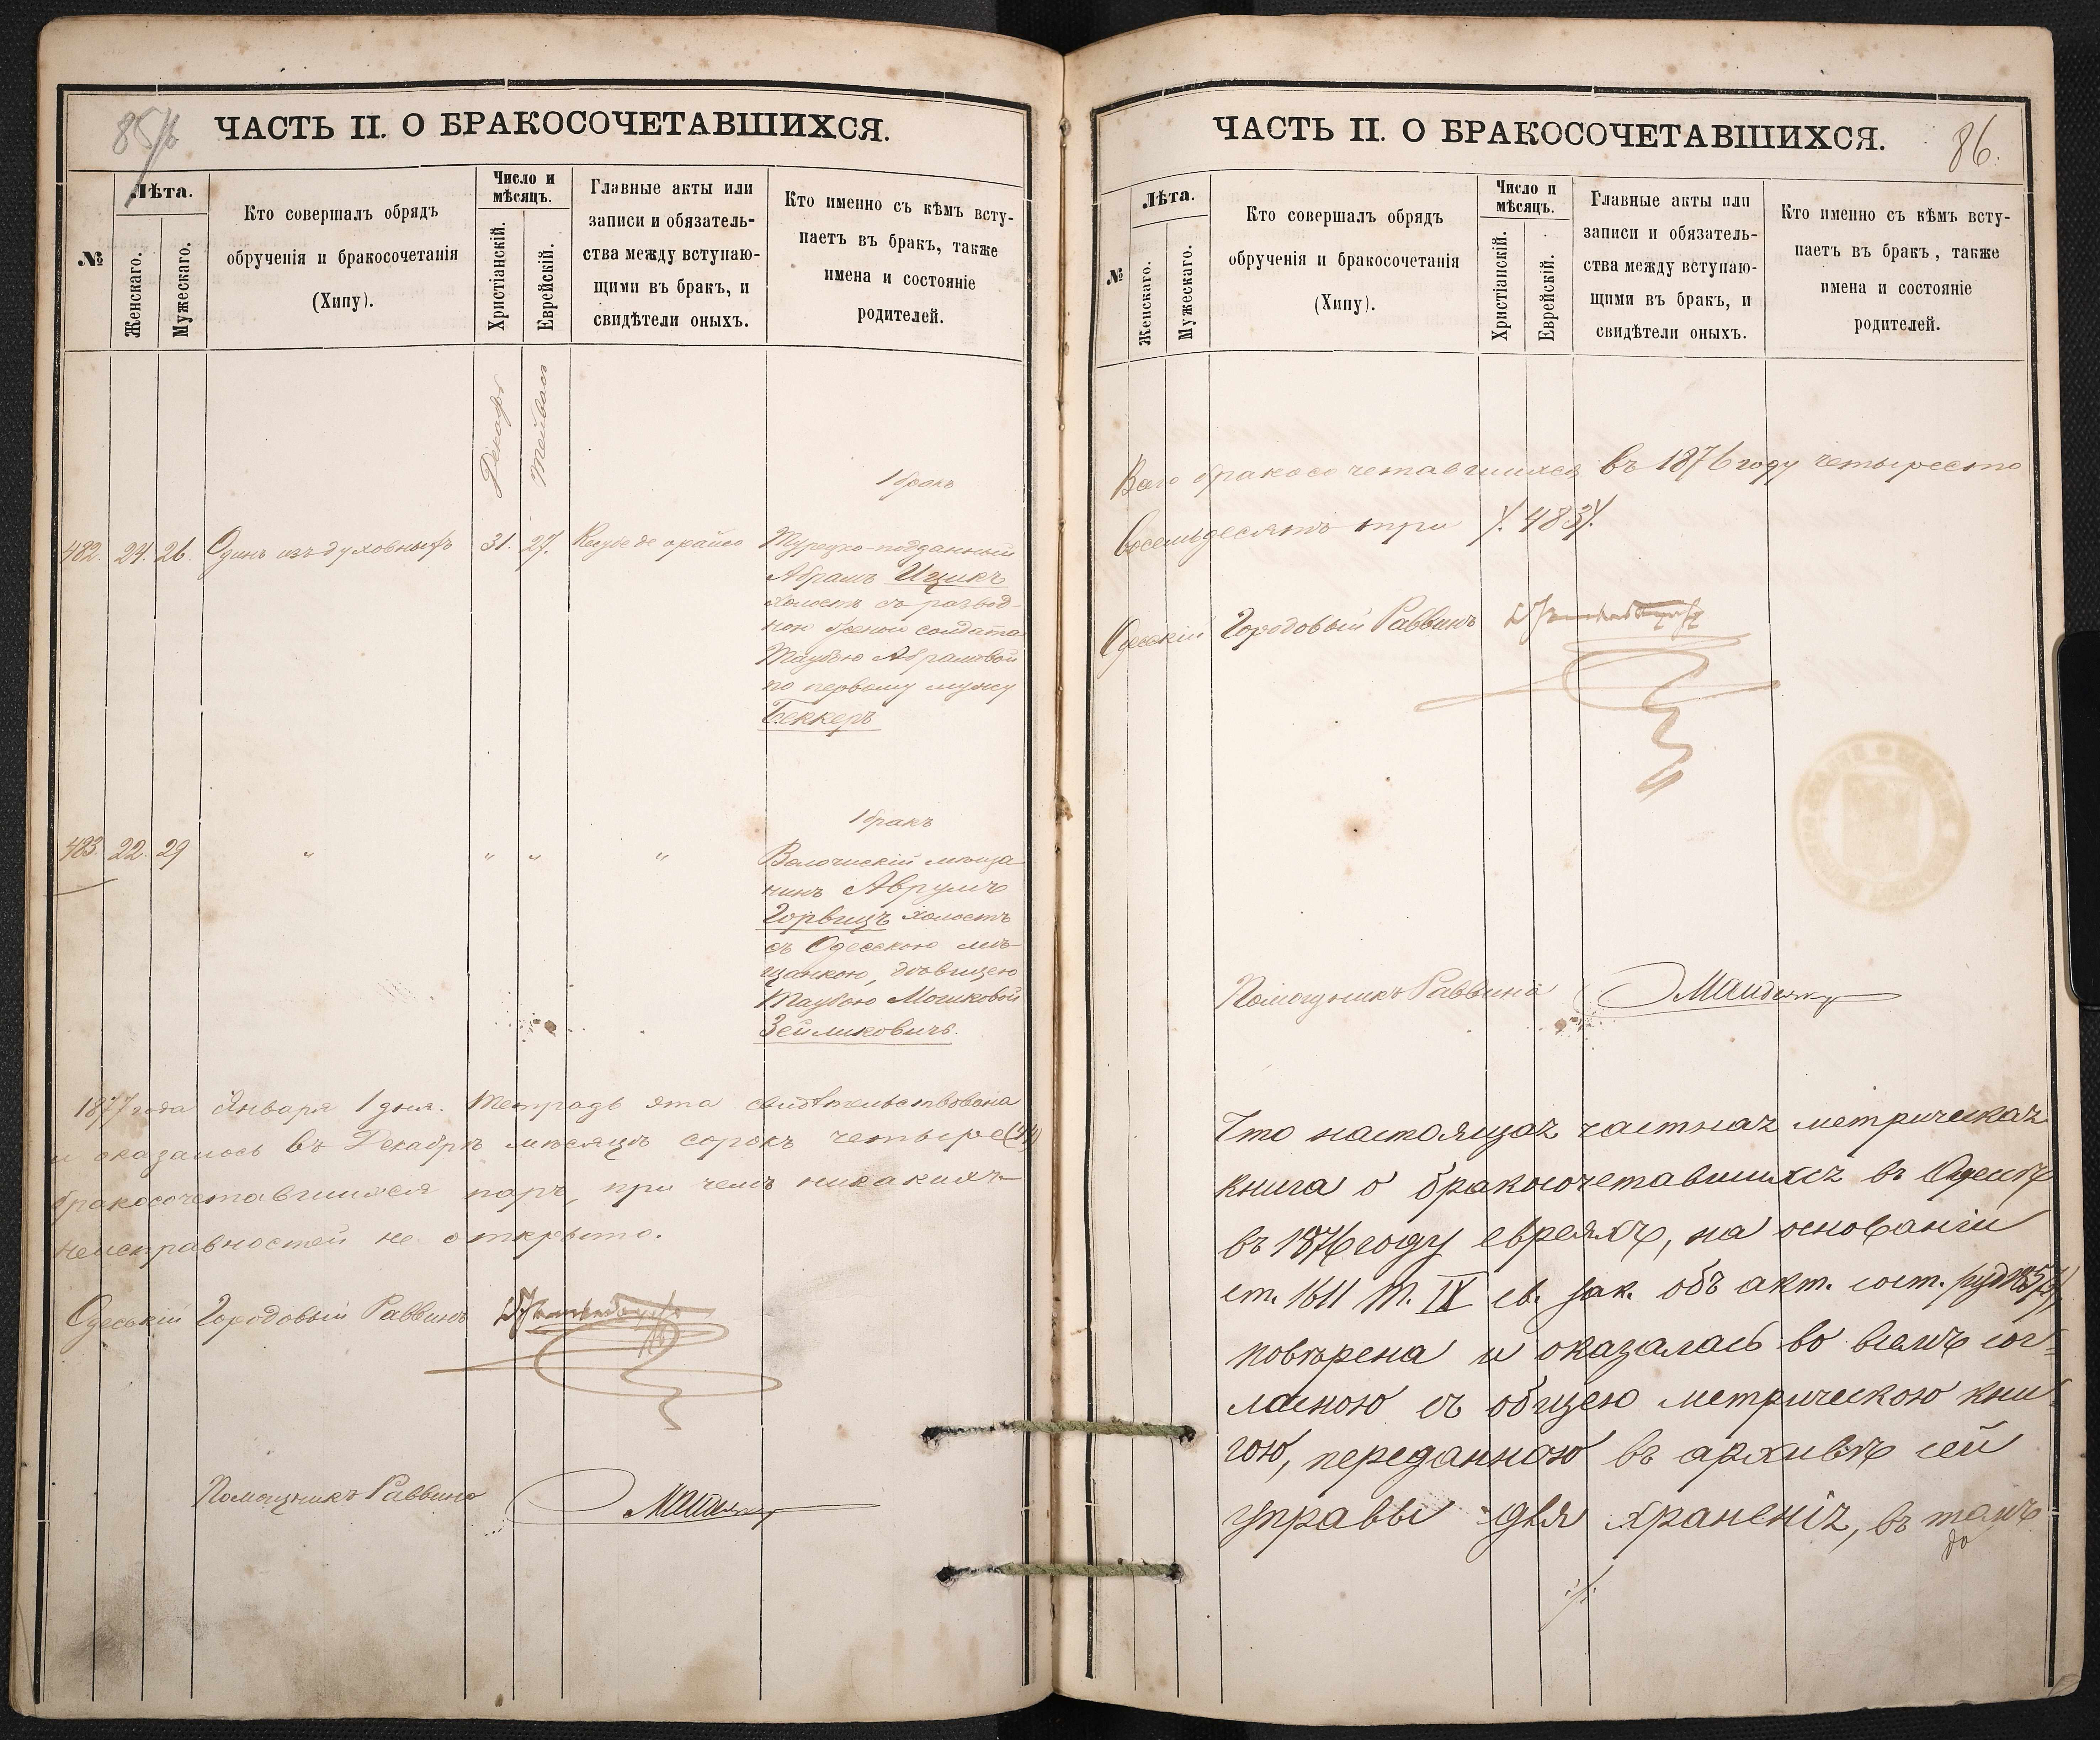 85/б
ЧАСТЬ II. О БРАКОСОЧЕТАВШИХСЯ.
№
Лѣта.
Женскаго.
Мужескаго.
Кто совершалъ обрядъ
обрученія и бракосочетанія
(Хипу).
Число и
мѣсяцъ.
Христіанскій.
Еврейскій.
Главные акты или
записи и обязатель-
ства между вступаю-
щими въ бракъ, и
свидѣтели оныхъ.
Кто именно съ кѣмъ всту-
паетъ въ бракъ, также
имена и состояніе
родителей.
Декабрь
Тейвасъ
1 бракъ
482. 24. 26. Одинъ изъ духовныхъ 31. 27. Кесубе де орайсо Турецко-подданный
Абрамъ Ицикъ
холостъ съ развод-
ною женою солдата
Таубою Абрамовой
по первому мужу
Беккеръ
1 бракъ
483. 22. 29 " " " " Волочискій мѣща
нинъ Аврумъ
Горвицъ холостъ
съ Одесскою мѣ-
щанкою, дѣвицею
Таубою Мошковой
Зейликовичъ.
1877 года Января 1 дня. Тетрадь эта свидѣтельствована
и оказалось въ Декабрѣ мѣсяцѣ сорокъ четыре (44)
бракосочетавшихся паръ, при чемъ никакихъ
неисправностей не открыто.
Одесскій Городовый Раввинъ
Помощникъ Раввина
86.
ЧАСТЬ II. О БРАКОСОЧЕТАВШИХСЯ.
№
Лѣта.
Женскаго.
Мужескаго.
Кто совершалъ обрядъ
обрученія и бракосочетанія
(Хипу).
Число и
мѣсяцъ.
Христіанскій.
Еврейскій.
Главные акты или
записи и обязатель-
ства между вступаю-
щими въ бракъ, и
свидѣтели оныхъ.
Кто именно съ кѣмъ всту-
паетъ въ бракъ, также
имена и состояніе
родителей.
Всего бракосочетавшихся въ 1876 году четыреста
восемьдесятъ три /. 483/.
Одесскій Городовый Раввинъ
Помощникъ Раввина
Что настоящая частная метрическая
книга о бракосочетавшихся въ Одессѣ
въ 1876 году евреяхъ, на основаніи
ст. 1611 т. IX св. зак. объ акт. сост.
повѣрена и оказалась во всемъ сог-
ласною съ общею метрическою кни-
гою, переданною въ архивѣ сей
управы для храненія, въ томъ